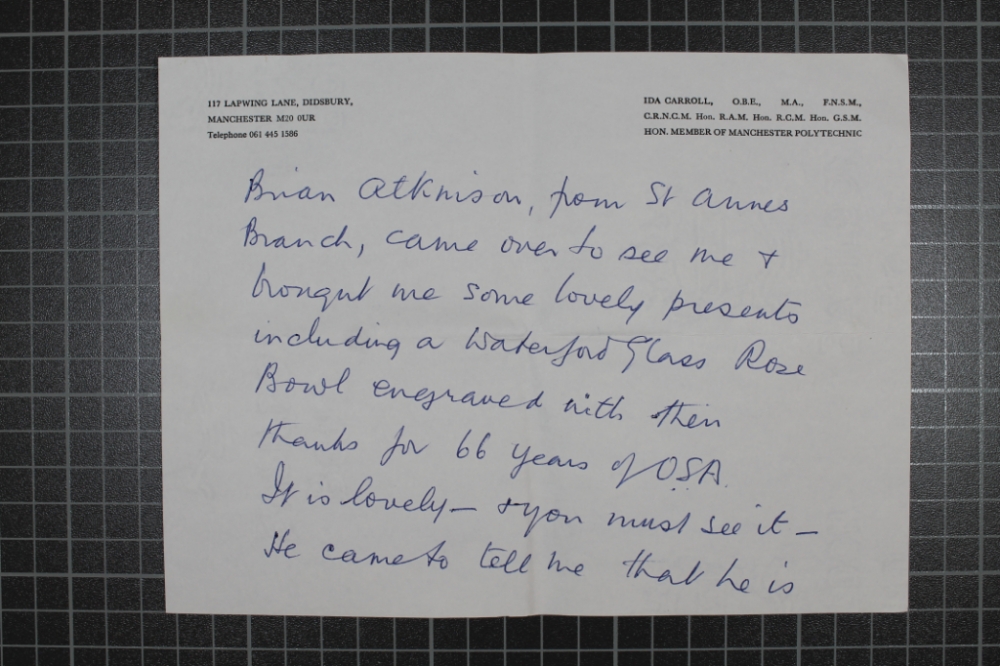 117 LAPWING LANE, DIDSBURY,
MANCHESTER M20 0UR
Telephone 061 445 1586
IDA CARROLL, O.B.E., M.A., F.N.S.M.,
C.R.N.C.M. Hon. R.A.M. Hon. R.C.M. Hon. G.S.M.
HON. MEMBER OF MANCHESTER POLYTECHNIC
Brian Atkinson, from St Annes
Branch, came over to see me +
brought me some lovely presents
including a Waterford Glass Rose
Bowl engraved with their
thanks for 66 years of OSA.
It is lovely — + you must see it —
He came to tell me that he is